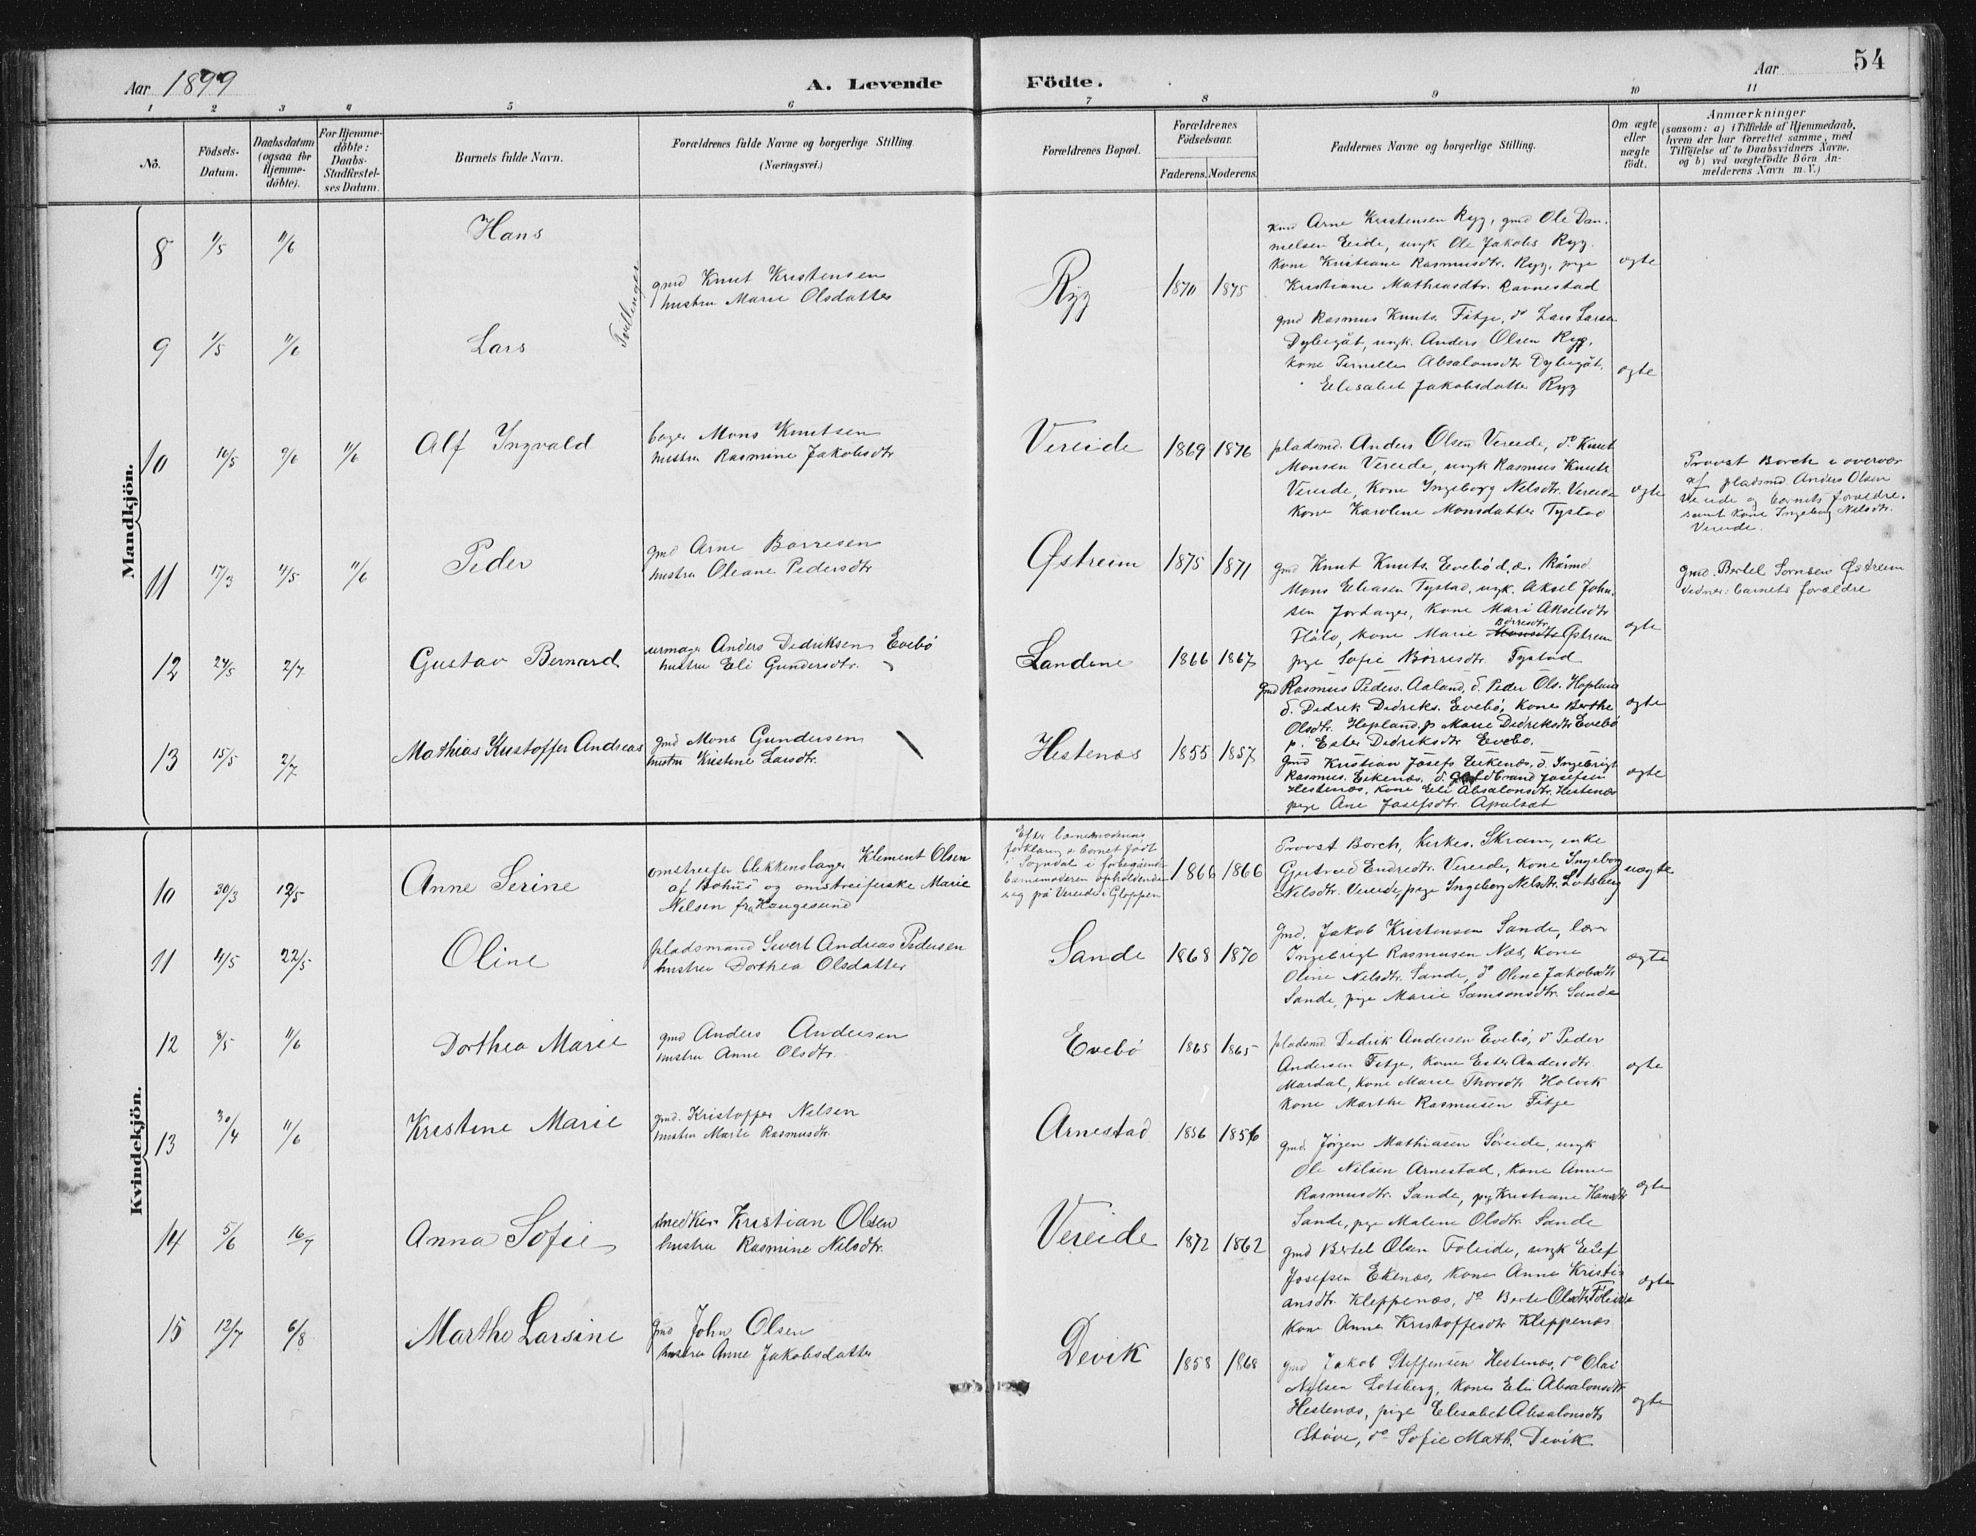 Aar 1899
A. Levende
Födte.
Aar
54
1 2 3 4 5 6 7 8 9 10 11
No.
Födsels-Datum.
Daabsdatum (ogsaa for Hjemmedöbte).
For Hjemmedöbte: Daabs-Stadfæstelses Datum.
Barnets fulde Navn.
Forældrenes fulde Navne og borgerlige Stilling
(Næringsvei.)
Forældrenes Bopæl.
Forældrenes Födselsaar.
Faderens. Moderens.
Faddernes Navne og borgerlige Stilling.
Om ægte eller uægte födt.
Anmærkninger
(saasom: a) i Tilfælde af Hjemmedaab, hvem der har forrettet samme, med Tilföielse af to Daabsvidners Navne, og b) ved uægtefödte Börn Anmelderens Navn m. V.)
Mandkjön.
8 1/5 11/6 Hans
Tvillinger
gmd Knut Kristensen
hustru Marie Olsdatter
Ryg 1870 1875
Arne Kristensen Ryg, gmd Ole Dan-
nielsen Eide, ungk Ole Jakobs Ryg.
Kone Kristiane Rasmusdtr. Ryg, pige
Kristiane Mathiasdtr. Ravnestad
ægte
9 1/5 11/6 Lars
gmd Rasmus Knuts. Fitje, do Lars Larsen
ungk. Anders Olsen Ryg,
Kone Pernille Absalonsdtr
Elisabet Jakobsdatter Ryg
ægte
10 16/5 9/6 11/6 Alf Ingvald
bager Mons Knutsen
hustru Rasmine Jakobsdtr
Vereide 1869 1876
pladsmd. Anders Olsen Vereide, do Knut
Monsen Vereide, ungk Rasmus Knuts
Vereide, Kone Ingeborg Nilsdtr. Vereide
Kone Karoline Monsdatter Tystad
ægte
Provst Borch i overvær
af pladsmd Anders Olsen
Vereide og barnets forældre.
samt Kone Ingeborg Nilsdtr.
Vereide.
11 17/3 4/5 11/6 Peder
gmd Arne Børresen
hustru Oleane Pedersdtr
Østreim 1875 1871
gmd Knut Knuts. Evebö,
Mons Eliasen Tystad, ungk. Aksel John-
sen Jordanger, Kone Mari Akselsdtr
Flölo, Kone Marie Børresdtr Østreim
pige Sofie Børresdtr. Tystad
ægte
gmd. Bertel Østreim
vidner: barnets forældre
12 24/5 2/7 Gustav Bernard
urmager Anders Didriksen Evebö
hustru Eli Gundersdtr.
Sandene 1866 1867
Gmd Rasmus Peders. Aaland, d. Peder Ols. Hopland
d. Didrik Didriks. Evebö, Kone Berthe
Olsdtr. Hopland, p Marie Didriksdtr Evebö
p. Ester Didriksdtr Evebö.
ægte
13 15/5 2/7 Mathias Kristoffer Andreas
gmd Mons Gundersen
hustru Kristine Larsdtr.
Hestenæs 1855 1857
Gmd Kristian Josefs Eikenæs, d. Ingebrigt
Rasmus. Eikenæs, d. Josefsen
Hestenæs, Kone Eli Absalonsdtr. Hestenæs
pige Ane Josefsdtr. Apalset
ægte
Kvindekjön.
10 30/3 12/5 Anne Serine
omstreifer blikkenslager Klement Olsen
af Bohus og omstreiferske Marie
Nilsen fra Haugesund
Efter barnemoderens
forklaring er barnet født
i Sogndal i forbigaaende
barnemoderen opholdende
sig på Vereide i Gloppen
1866 1866
Provst Borch, Kirkes. Skram, enke
Gjertrud Endredtr. Vereide, Kone Ingeborg
Nilsdtr. Vereide, pige Ingeborg Nilsdtr. Lotsberg
uægte
11 4/5 22/5 Oline
pladsmand Sivert Andreas Pedersen
hustru Dorthea Olsdatter
Sande 1868 1870
Gmd. Jakob Kristensen Sande, lærer
Ingebrigt Rasmusen Næs, Kone
Oline Nilsdtr. Sande, do Oline Jakobsdtr
Sande, pige Marie Samsonsdtr. Sande
ægte
12 8/5 11/6 Dorthea Marie
gmd Anders Andersen
hustru Anne Olsdtr.
Evebö 1865 1865
pladsmd Didrik Andersen Evebö, d Peder
Andersen Fitje, Kone Ester Andersdtr.
Mardal, Kone Marie Thorsdtr Holvik
Kone Marthe Rasmusen Fitje
ægte
13 30/4 11/6 Kristine Marie
gmd. Kristoffer Nilsen
hustru Marie Rasmusdtr.
Arnestad 1856 1856
gmd. Jørgen Mathiasen Søreide, ungk
Ole Nilsen Arnestad, Kone Anne
Rasmusdtr. Sande, pige Kristiane Hansdtr
Sande, pige Malene Olsdtr. Sande
ægte
14 5/6 16/7 Anna Sofie
snedker Kristian Olsen
hustru Rasmine Nilsdtr.
Vereide 1872 1862
gmd Bertel Olsen Foleide, ungk
Josefsen Ekenæs, Kone Anne Kristi-
ansdtr. Kleppenæs, do Berte Olsdtr Foleide
Kone Anne Kristoffersdtr Kleppenæs
ægte
15 12/7 6/8 Marthe Larsine
Gmd John Olsen
hustru Anne Jakobsdatter
Devik 1858 1868
gmd Jakob Steffensen Hestenæs, do Olai
Nilsen Lotsberg, Kone Eli Absalonsdtr
Hestenæs, pige Elisabet Absalonsdtr
Støve, do Sofie Math. Devik
ægte